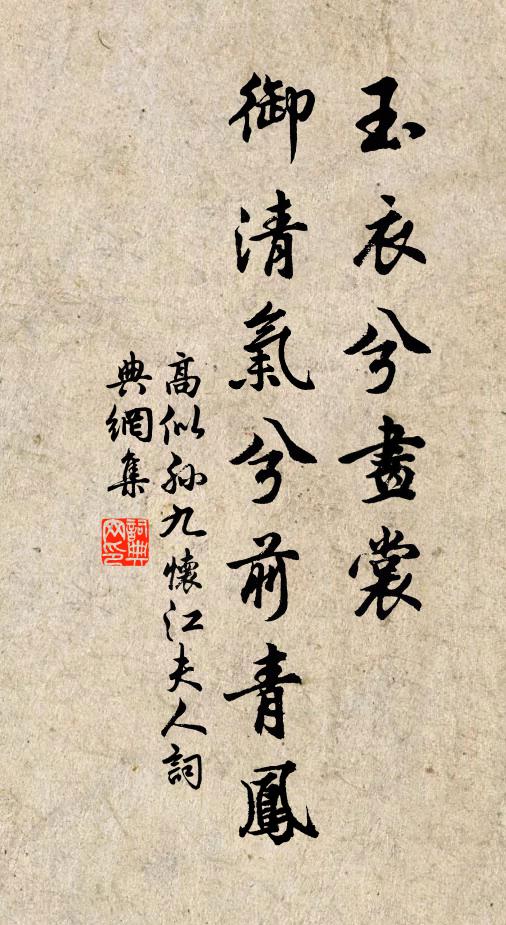 玉衣兮畫裳
御清氣兮前青鳳
高似孙九懷江夫人詞
典網集
詞典網印